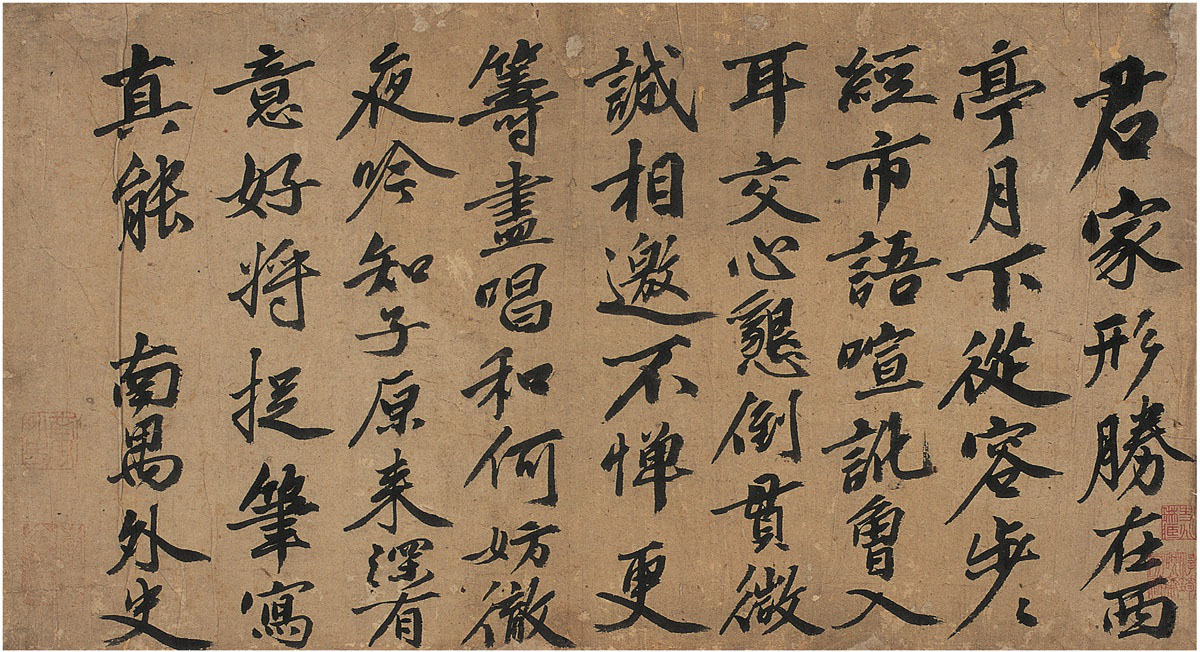 君家形勝在西
亭月下從容步々
經市語喧訛曾入
耳交心懇倒貫微
誠相邀不憚更
籌盡唱和何妨徹
夜吟知子原来深有
意好将捉筆寫
真能 南禺外史